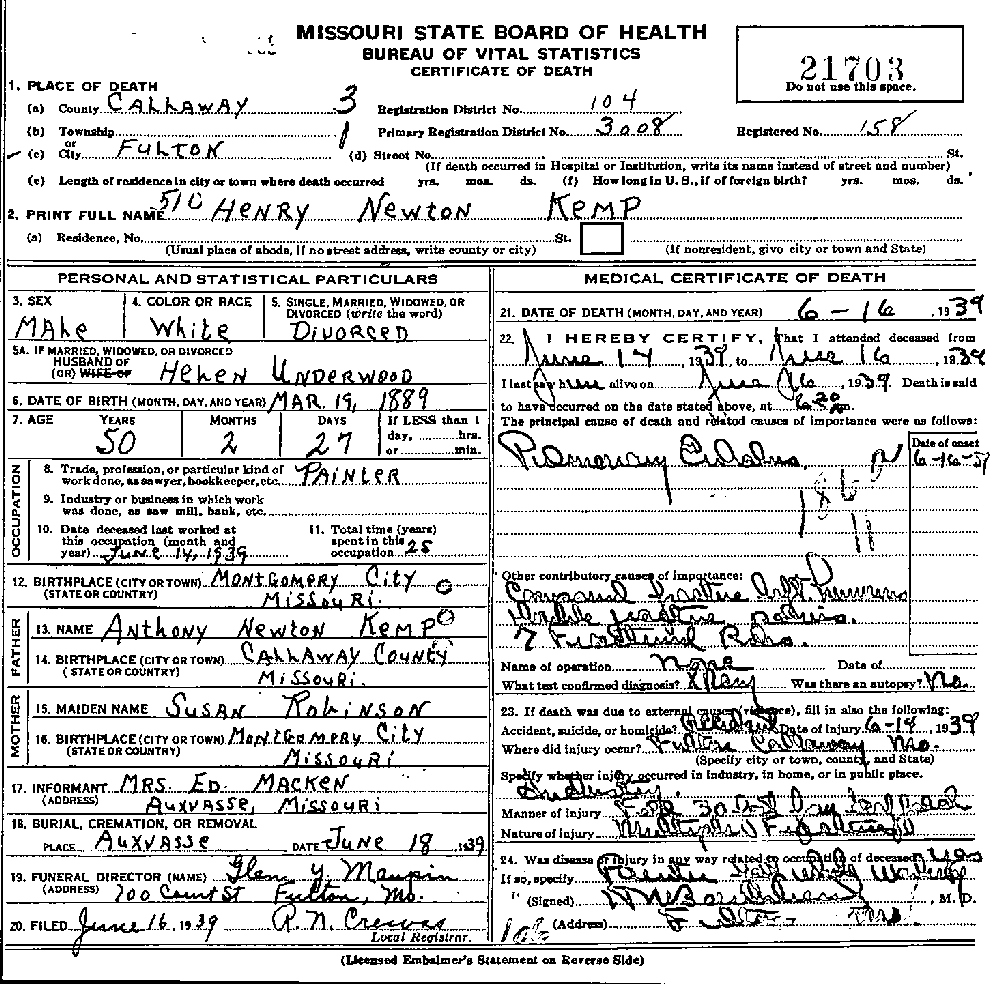 MISSOURI STATE BOARD OF HEALTH
BUREAU OF VITAL STATISTICS
CERTIFICATE OF DEATH
21703
Do not use this space.
1. PLACE OF DEATH
(a) County CALLAWAY 3 Registration District No. 104
(b) Township 1 Primary Registration District No. 3008 Registered No. 158
or
(c) City FULTON (d) Street No. St.
(If death occurred in Hospital or Institution, write its name instead of street and number)
(e) Length of residence in city or town where death occurred yrs. mos. ds. (f) How long in U.S., if of foreign birth? yrs. mos. ds.
2. PRINT FULL NAME 510 HENRY NEWTON KEMP
(a) Residence, No. St.
(Usual place of abode, if no street address, write county or city) (If nonresident, give city or town and State)
PERSONAL AND STATISTICAL PARTICULARS
3. SEX 4. COLOR OR RACE 5. SINGLE, MARRIED, WIDOWED, OR
DIVORCED (write the word)
MALE White DIVORCED
5A. IF MARRIED, WIDOWED, OR DIVORCED
HUSBAND OF
(OR) WIFE OF HELEN UNDERWOOD
6. DATE OF BIRTH (MONTH, DAY, AND YEAR) MAR. 19, 1889
7. AGE YEARS MONTHS DAYS If LESS than 1
day, hrs.
or min.
50 2 27
OCCUPATION
8. Trade, profession, or particular kind of
work done, as sawyer, bookkeeper, etc. PAINTER
9. Industry or business in which work
was done, as saw mill, bank, etc.
10. Date deceased last worked at
this occupation (month and
year) JUNE 14, 1939
11. Total time (years)
spent in this
occupation 25
12. BIRTHPLACE (CITY OR TOWN) MONTGOMERY CITY
(STATE OR COUNTRY) MISSOURI.
FATHER
13. NAME ANTHONY NEWTON KEMP
14. BIRTHPLACE (CITY OR TOWN) CALLAWAY COUNTY
(STATE OR COUNTRY) MISSOURI.
MOTHER
15. MAIDEN NAME SUSAN ROBINSON
16. BIRTHPLACE (CITY OR TOWN) MONTGOMERY CITY
(STATE OR COUNTRY) MISSOURI
17. INFORMANT MRS. ED. MACKEN
(ADDRESS) AUXVASSE, MISSOURI
18. BURIAL, CREMATION, OR REMOVAL
PLACE AUXVASSE DATE JUNE 18 1939
19. FUNERAL DIRECTOR (NAME) Glen Y. Maupin
(ADDRESS) 700 Court St Fulton, Mo.
20. FILED June 16, 1939 R. N. Crews
Local Registrar.
MEDICAL CERTIFICATE OF DEATH
21. DATE OF DEATH (MONTH, DAY, AND YEAR) 6-16, 1939
22. I HEREBY CERTIFY, That I attended deceased from
June 14, 1939, to June 16, 1939
I last saw him alive on June 16, 1939. Death is said
to have occurred on the date stated above, at 6:20
The principal cause of death and related causes of importance were as follows:
Date of onset
Pulmonary Embolus 6-16-39
Other contributory causes of importance:
Compound fracture left humerus
fracture radius.
7 fractured Ribs.
Name of operation none Date of
What test confirmed diagnosis? X Ray Was there an autopsy? No.
23. If death was due to external causes (violence), fill in also the following:
Accident, suicide, or homicide? Accident Date of injury 6-14, 1939
Where did injury occur? Fulton Callaway Mo.
(Specify city or town, county, and State)
Specify whether injury occurred in industry, in home, or in public place.
Industry.
Manner of injury Fell 30
Nature of injury Multiple
24. Was disease or injury in any way related to occupation of deceased? yes
If so, specify Painter fell while working
(Signed) M. D.
106 (Address) Fulton Mo.
(Licensed Embalmer's Statement on Reverse Side)